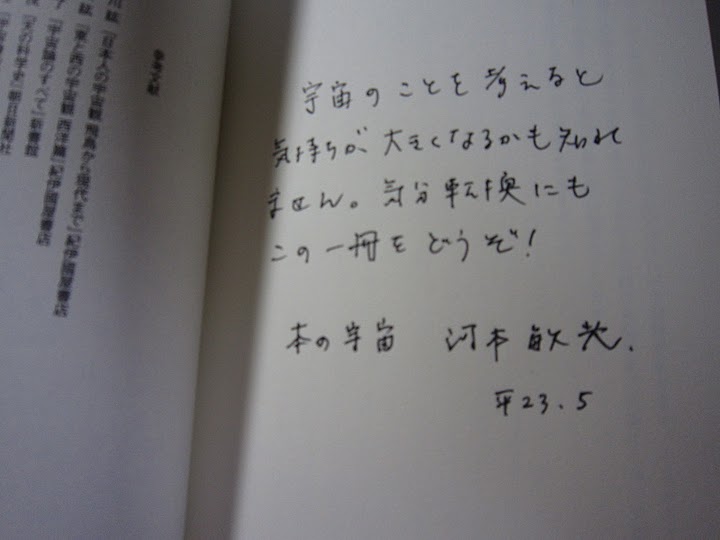 宇宙のことを考えると
気持ちが大きくなるかも知れ
ません。気分転換にも
この一冊をどうぞ!
本の宇宙 河本
平23.5
参考文献
川 紘『日本人の宇宙観 飛鳥から現代まで』紀伊國屋書店
紘『東と西の宇宙観 西洋篇』紀伊國屋書店
了『宇宙論のすべて』新書館
『天の科学史』朝日新聞社